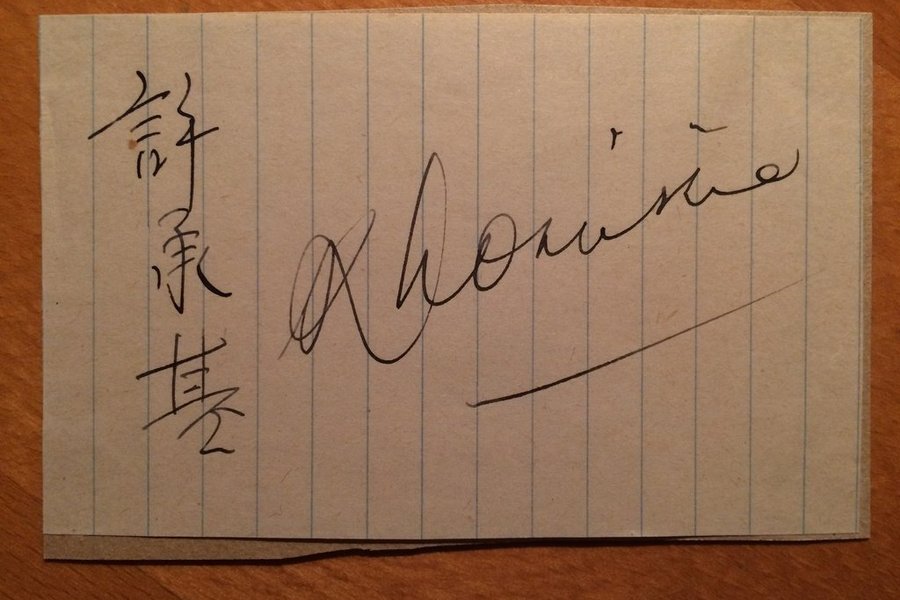 許承基
Kho Sin Kie